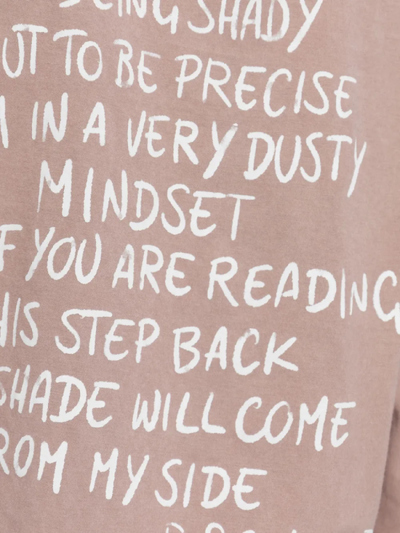 BEING SHADY
UT TO BE PRECISE
IN A VERY DUSTY
MINDSET
F YOU ARE READING
HIS STEP BACK
SHADE WILL COME
ROM MY SIDE